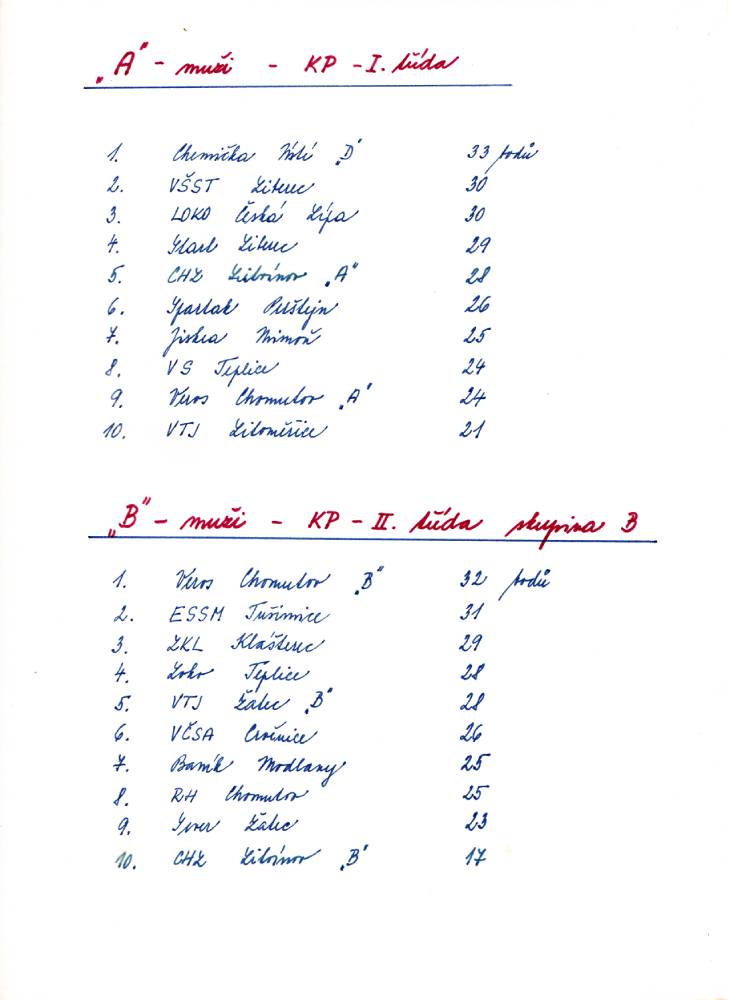 „A" - muži - KP - I. třída
1. Chemička Ústí „D" 33 bodů
2. VŠST Liberec 30
3. LOKO Česká Lípa 30
4. Start Liberec 29
5. CHZ Litvínov „A" 28
6. Spartak Perštejn 26
7. Jiskra Mimoň 25
8. VS Teplice 24
9. Veros Chomutov „A" 24
10. VTJ Litoměřice 21
„B" - muži - KP - II. třída skupina B
1. Veros Chomutov „B" 32 bodů
2. ESSM Tušimice 31
3. ZKL Klášterec 29
4. Loko Teplice 28
5. VTJ Žatec „B" 28
6. VČSA Ervěnice 26
7. Baník Modlany 25
8. RH Chomutov 25
9. Sever Žatec 23
10. CHZ Litvínov „B" 17